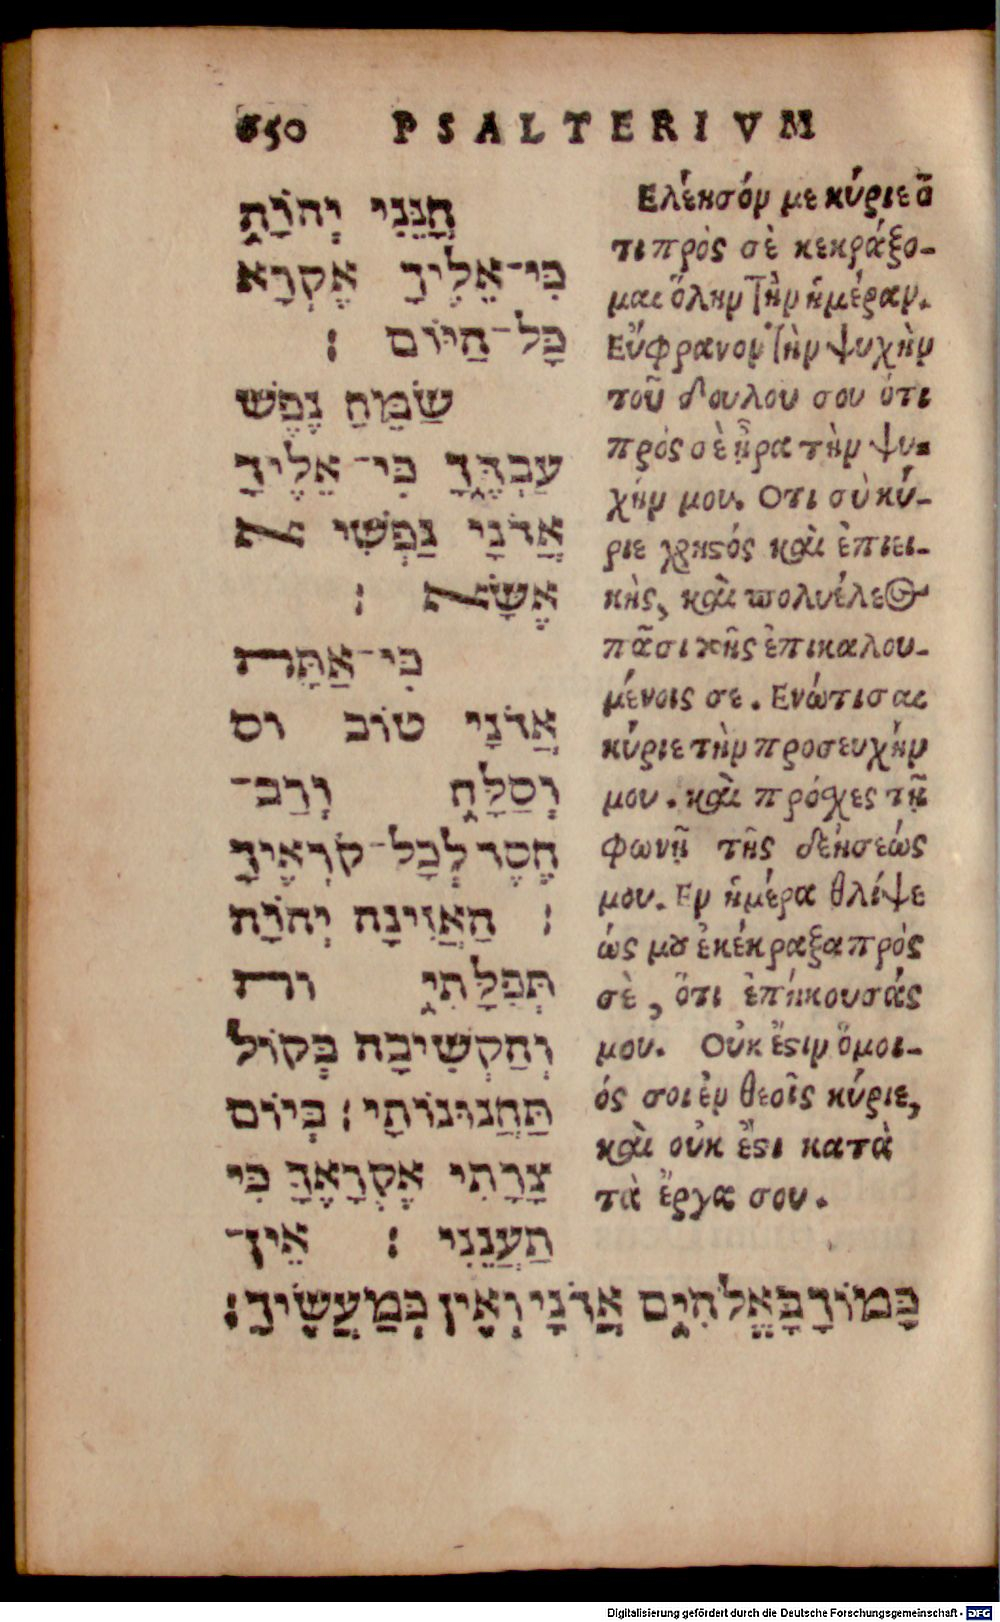 650 PSALTERIVM
חָנֵּנִי יְהוָֹה
כִּי־אֵלֶיךָ אֶקְרָא
כָּל־הַיּוֹם :
שַׂמֵּחַ נֶפֶשׁ
עַבְדֶּךָ כִּי־אֵלֶיךָ
אֲדֹנָי נַפְשִׁי א
אֶשָּׂא :
כִּי־אַתָּה
אֲדֹנָי טוֹב וס
וְסַלָּח וְרַב־
חֶסֶד לְכָל־קֹרְאֶיךָ
: הַאֲזִינָה יְהוָֹה
תְּפִלָּתִי וה
וְהַקְשִׁיבָה בְּקוֹל
תַּחֲנוּנוֹתָי : בְּיוֹם
צָרָתִי אֶקְרָאֶךָּ כִּי
תַעֲנֵנִי : אֵין־
כָּמוֹךָ בָאֱלֹהִים אֲדֹנָי וְאֵין כְּמַעֲשֶׂיךָ :
Ελέησόν με κύριε ὅ
τι πρὸς σὲ κεκράξο-
μαι ὅλην τὴν ἡμέραν.
Εὔφρανον τὴν ψυχὴν
τοῦ δούλου σου ὁτι
πρός σὲ ἦρα τὴν ψυ-
χήν μου. Οτι σὺ κύ-
ριε χρηϛός καὶ ἐπιει-
κὴς, καὶ πολυέλεος
πᾶσι τοῖς ἐπικαλου-
μένοις σε. Ενώτισαι
κύριε τὴν προσευχήν
μου. καὶ πρόσχες τῇ
φωνῇ τῆς δεήσεώς
μου. Εν ἡμέρα θλίψε
ώς μȣ ἐκέκραξα πρὸς
σὲ, ὅτι ἐπήκουσάς
μου. Οὐκ ἔϛιν ὅμοι-
ός σοι ἐν θεοῖς κύριε,
καὶ οὐκ ἔϛι κατὰ
τὰ ἔργα σου.
Digitalisierung gefördert durch die Deutsche Forschungsgemeinschaft - DFG